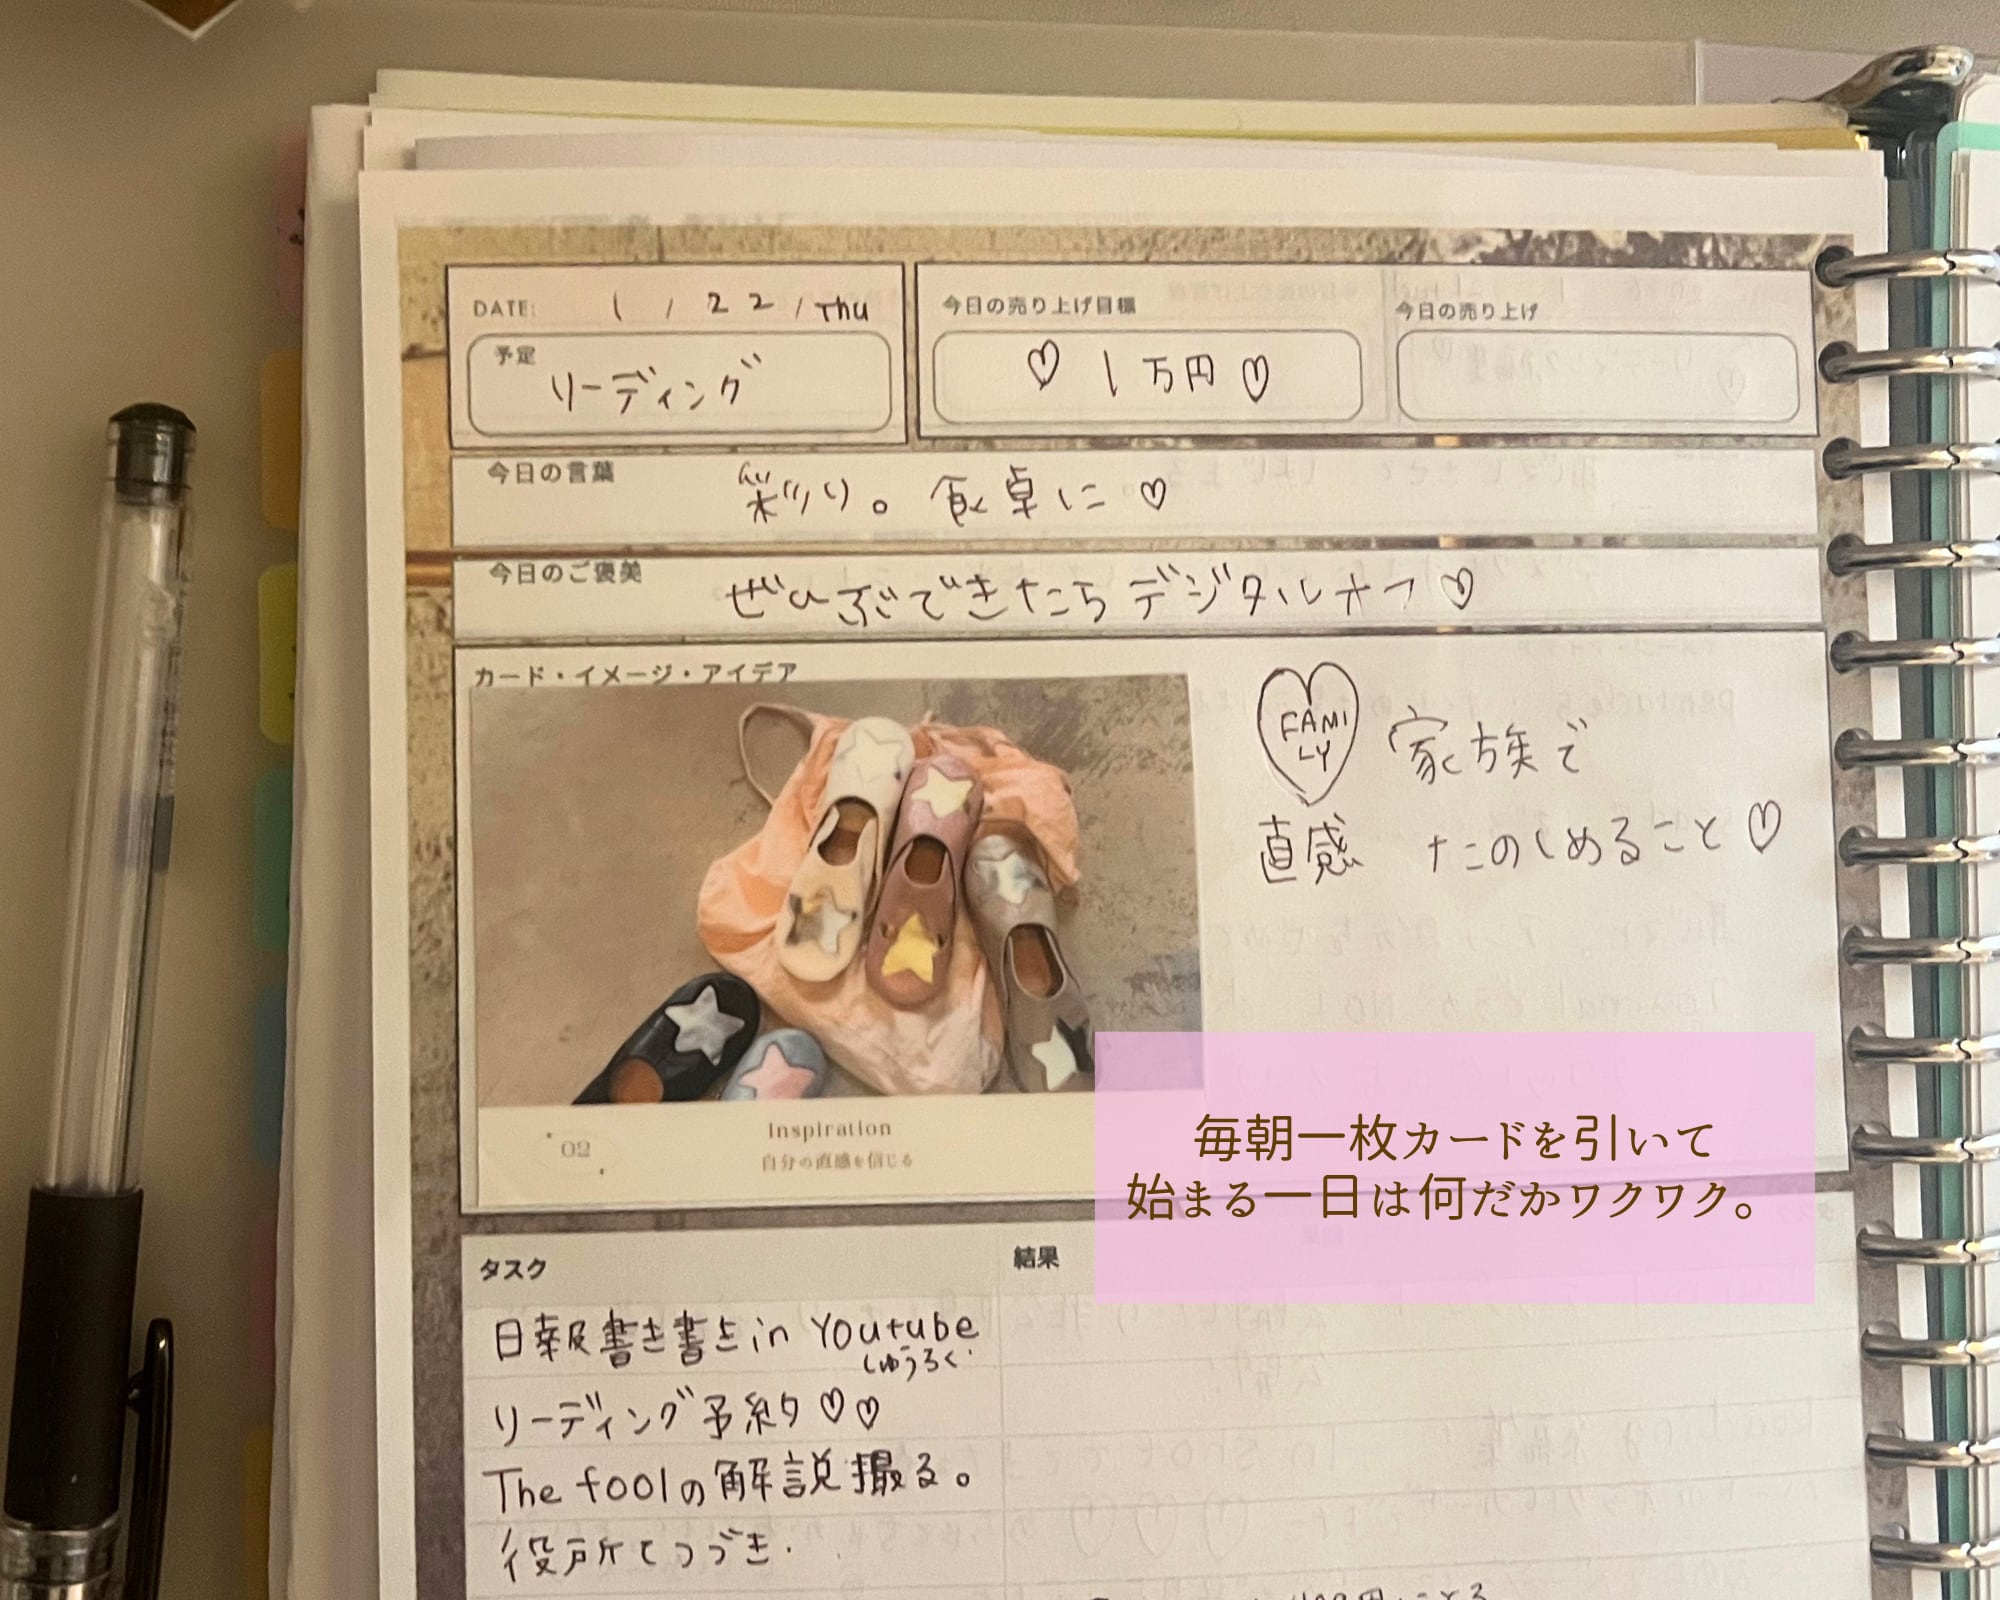 DATE: 1 / 22 / Thu
今日の売り上げ目標
今日の売り上げ
予定
リーディング
♡ 1万円 ♡
今日の言葉
彩り。食卓に♡
今日のご褒美
ぜんぶできたらデジタルオフ♡
カード・イメージ・アイデア
FAMI
LY
家族で
直感 たのしめること♡
02
Inspiration
自分の直感を信じる
毎朝一枚カードを引いて
始まる一日は何だかワクワク。
タスク
結果
日報書き書き in Youtube
しゅうろく.
リーディング予約♡♡
The foolの解説撮る。
役所てつづき.